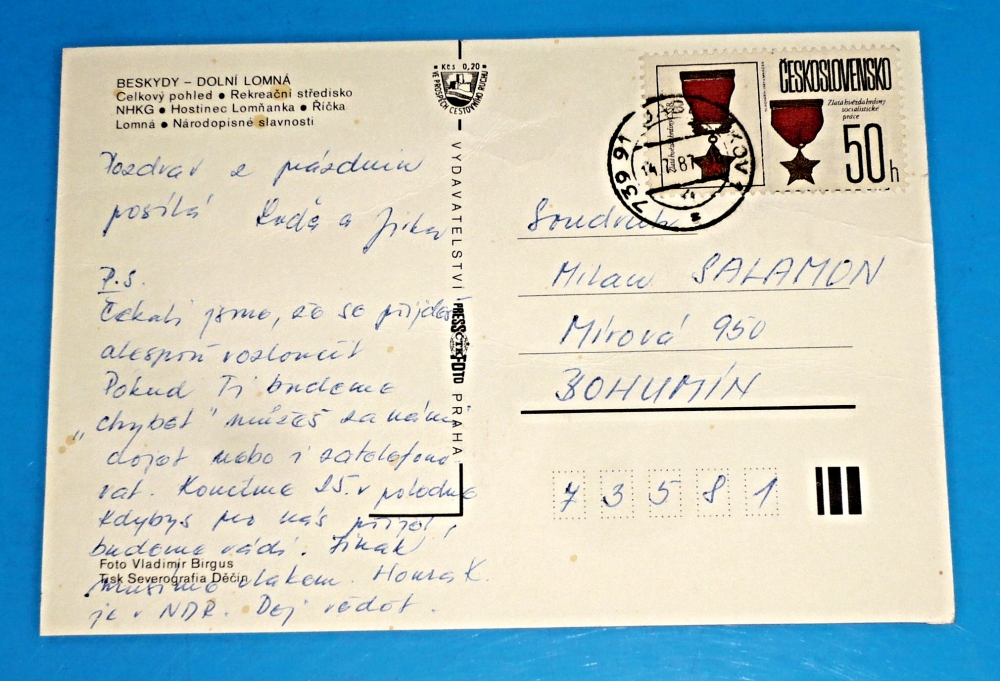 BESKYDY – DOLNÍ LOMNÁ
Celkový pohled ● Rekreační středisko
NHKG ● Hostinec Lomňanka ● Říčka
Lomná ● Národopisné slavnosti
Pozdrav z prázdnin
posílá Luďa a Jirka
P.S.
Čekali jsme, že se přijdeš
alespoň rozloučit
Pokud Ti budeme
„chybět" můžeš za námi
dojet nebo i zatelefono
vat. Končíme 25. v poledne
Kdybys pro nás přijel,
budeme rádi. Jinak
musíme vlakem. Honza K.
je v NDR. Dej vědět.
Foto Vladimír Birgus
Tisk Severografia Děčín
Kčs 0,20
VE PROSPĚCH CESTOVNÍHO RUCHU
VYDAVATELSTVÍ PRESSFOTO PRAHA
ČTK
ČESKOSLOVENSKO
Zlatá hvězda hrdiny
socialistické
práce
50h
739 91
14.7.87
Soudruh
Milan SALAMON
Mírová 950
BOHUMÍN
73581